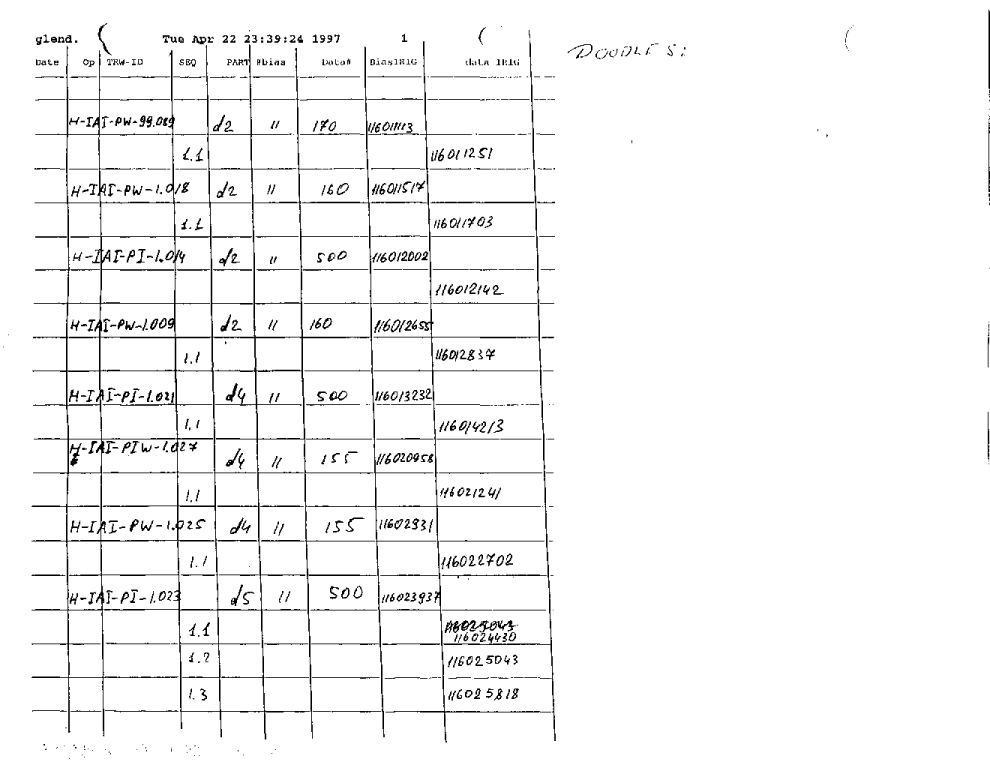 glend. Tue Apr 22 23:39:24 1997 1
DOODLES:
Date Op TRW-ID SEQ PART Rbias Data# BiasIRIG data IRIG
H-IAI-PW-99.089 d2 " 170 116011113
1.1 116011251
H-IAI-PW-1.018 d2 " 160 116011517
1.1 116011703
H-IAI-PI-1.014 d2 " 500 116012002
116012142
H-IAI-PW-1.009 d2 " 160 116012655
1.1 116012837
H-IAI-PI-1.021 d4 " 500 116013232
1.1 116014213
H-IAI-PIW-1.027 d4 " 155 116020958
1.1 116021241
H-IAI-PW-1.025 d4 " 155 11602931
1.1 116022702
H-IAI-PI-1.023 d5 " 500 116023937
116025043
1.1 116024430
1.2 116025043
1.3 116025818